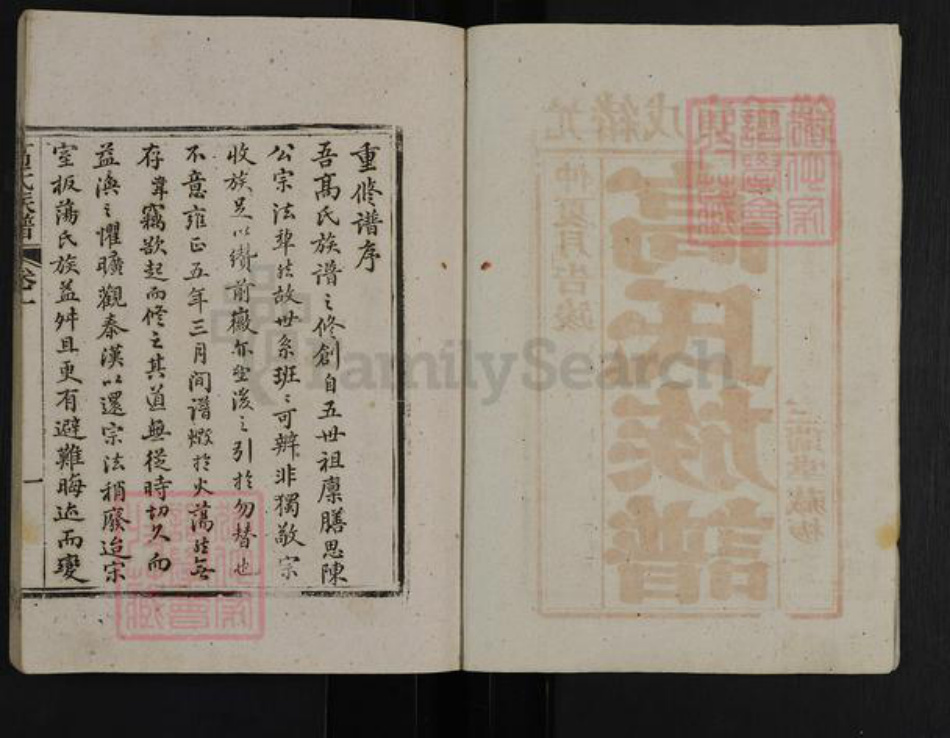 重修譜序
吾高氏族譜之修創自五世祖廩膳思陳
公宗法犂然故世系班班可辨非獨敬宗
收族足以纘前徽亦垂後之引於勿替也
不意雍正五年三月間譜燬於火蕩然無
存常竊欲起而修之其道無從時切久而
益湮之懼曠觀秦漢以還宗法稍廢迨宗
室板蕩氏族益舛且更有避難晦迹而變
高氏族譜
卷一
一
光緒戊
仲夏月吉
高氏族譜
堂藏
FamilySearch